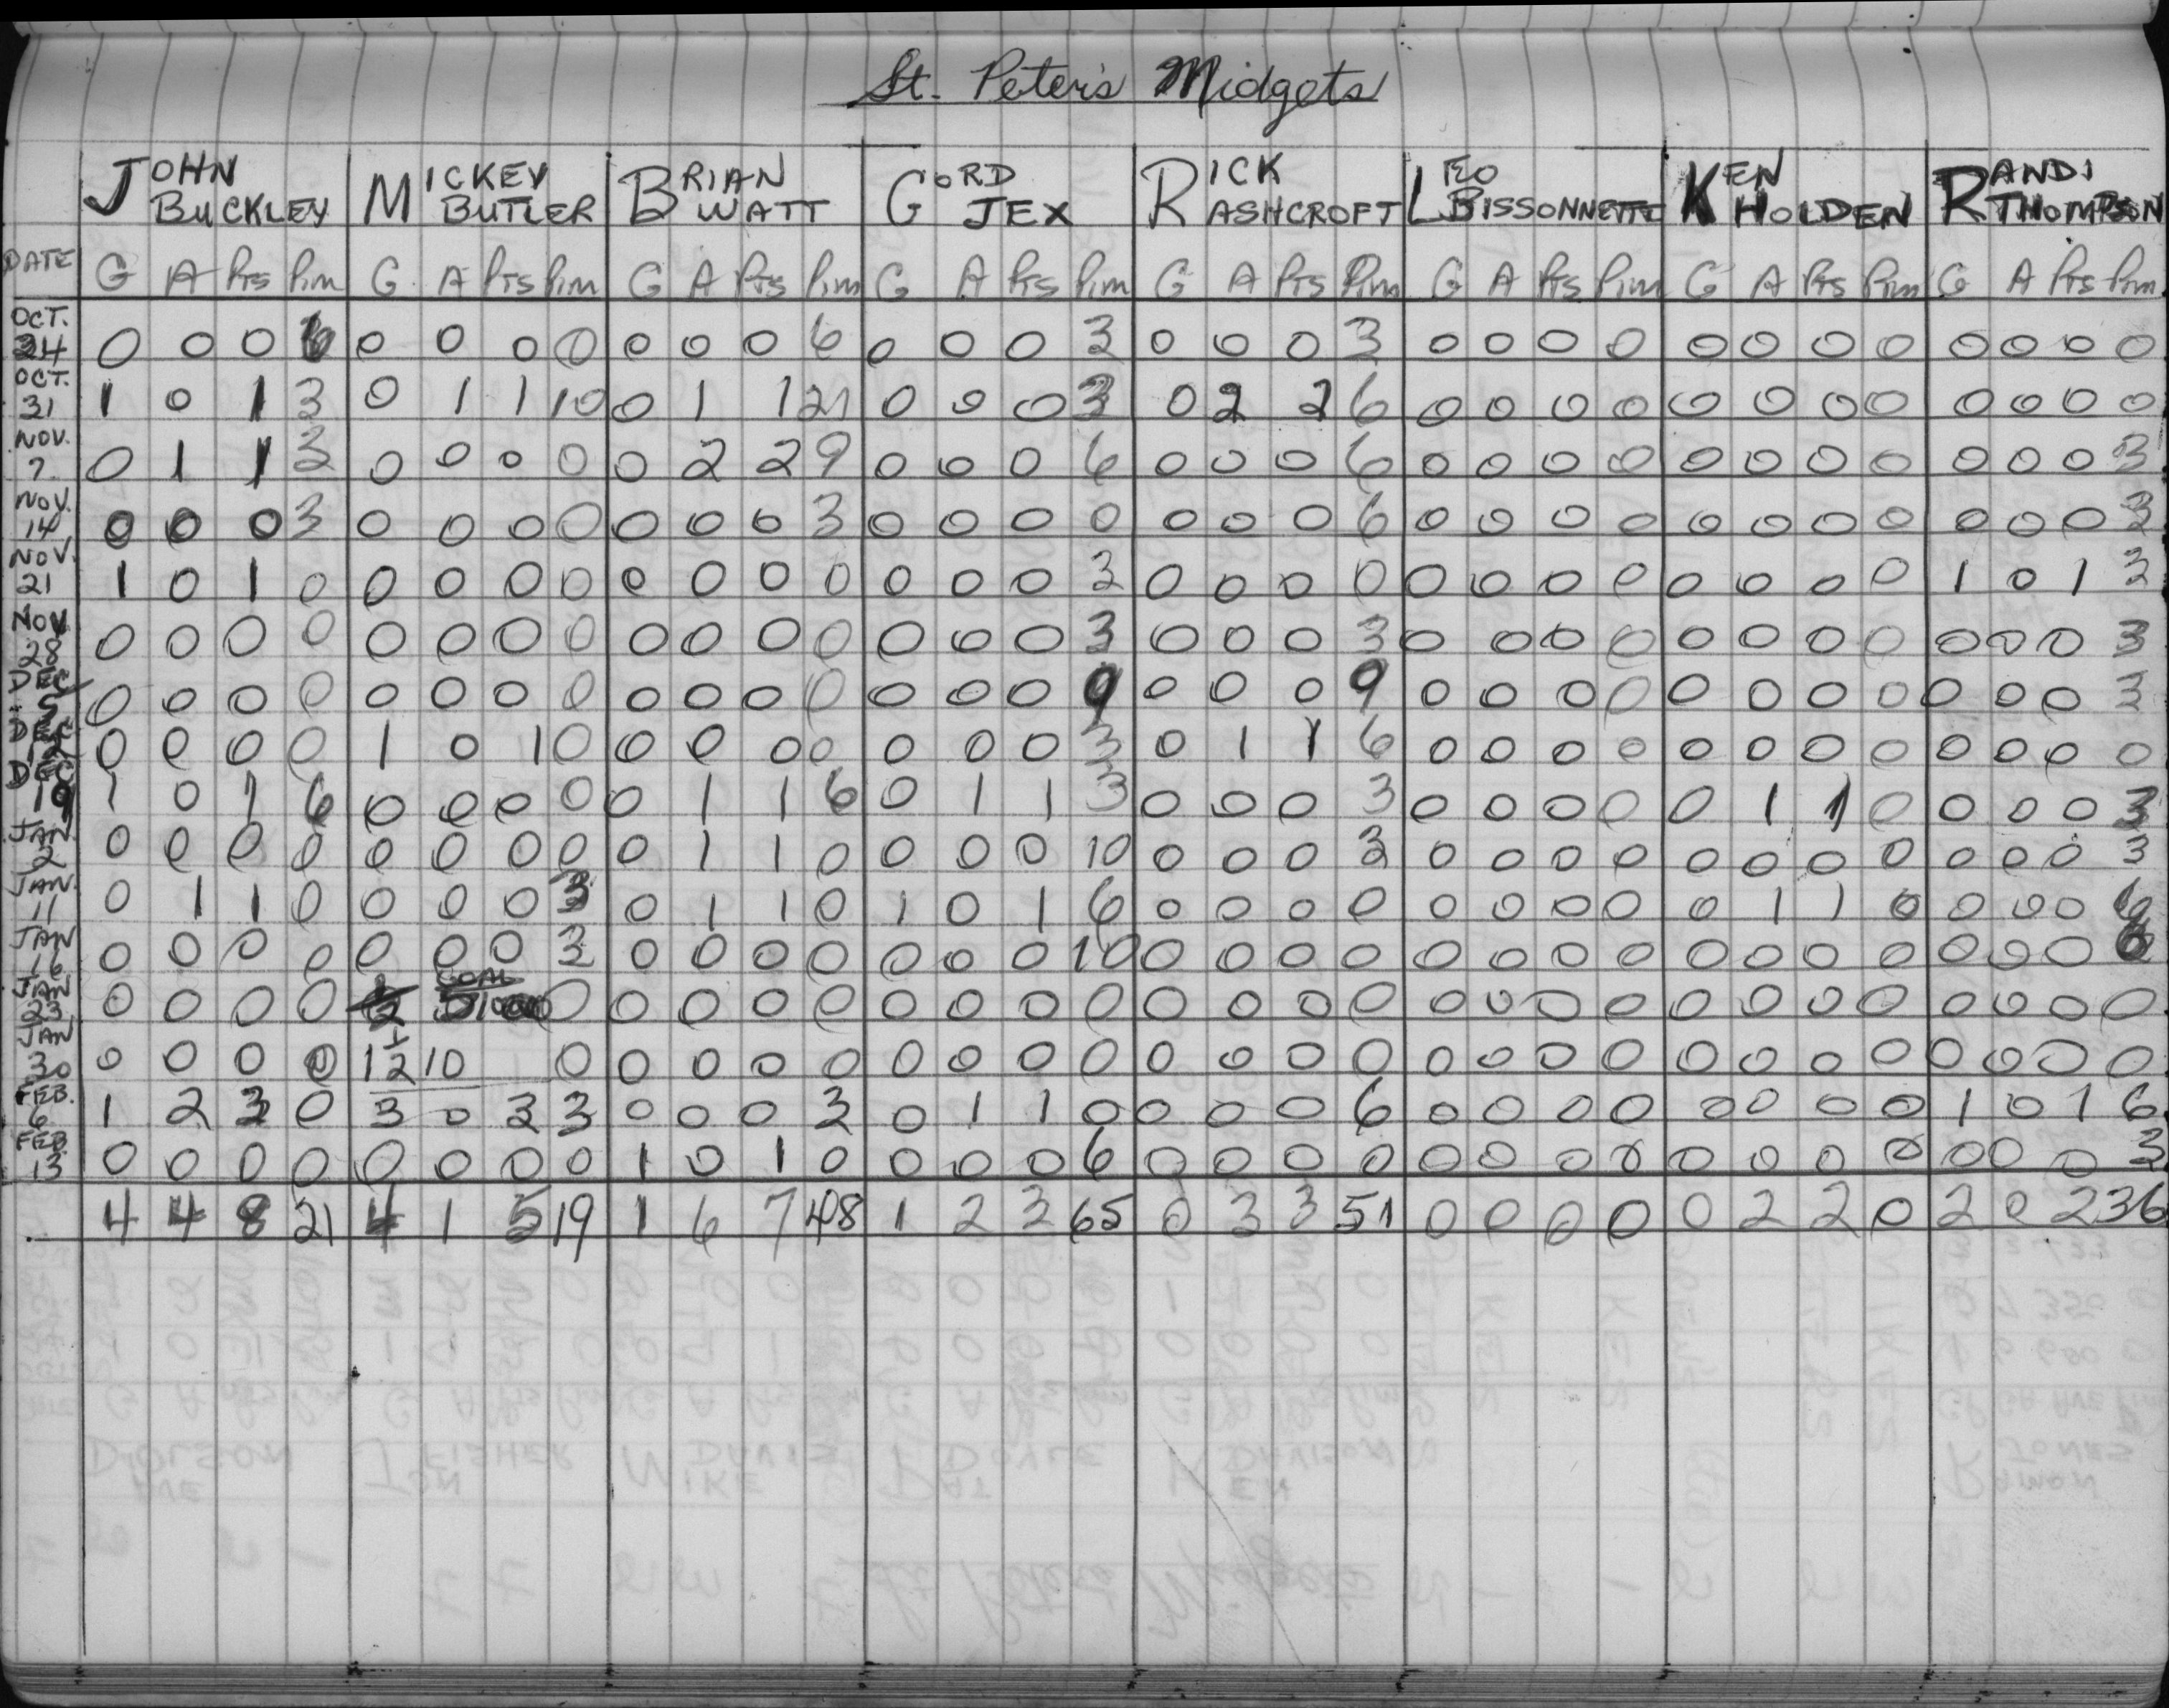 St. Peter's Midgets
JOHN BUCKLEY MICKEY BUTLER BRIAN WATT GORD JEX RICK ASHCROFT LEO BISSONNETTE KEN HOLDEN RANDI THOMPSON
DATE G A Pts Pim G A Pts Pim G A Pts Pim G A Pts Pim G A Pts Pim G A Pts Pim G A Pts Pim G A Pts Pim
OCT. 24 0 0 0 6 0 0 0 0 0 0 0 6 0 0 0 3 0 0 0 3 0 0 0 0 0 0 0 0 0 0 0 0
OCT. 31 1 0 1 3 0 1 1 10 0 1 1 21 0 0 0 3 0 2 2 6 0 0 0 0 0 0 0 0 0 0 0 0
NOV. 7 0 1 1 3 0 0 0 0 0 2 2 9 0 0 0 6 0 0 0 6 0 0 0 0 0 0 0 0 0 0 0 3
NOV. 14 0 0 0 3 0 0 0 0 0 0 0 3 0 0 0 0 0 0 0 6 0 0 0 0 0 0 0 0 0 0 0 3
NOV. 21 1 0 1 0 0 0 0 0 0 0 0 0 0 0 0 3 0 0 0 0 0 0 0 0 0 0 0 0 1 0 1 3
NOV. 28 0 0 0 0 0 0 0 0 0 0 0 0 0 0 0 3 0 0 0 3 0 0 0 0 0 0 0 0 0 0 0 3
DEC 5 0 0 0 0 0 0 0 0 0 0 0 0 0 0 0 9 0 0 0 9 0 0 0 0 0 0 0 0 0 0 0 3
DEC 12 0 0 0 0 1 0 1 0 0 0 0 0 0 0 0 3 0 1 1 6 0 0 0 0 0 0 0 0 0 0 0 0
DEC 19 1 0 1 6 0 0 0 0 0 1 1 6 0 1 1 3 0 0 0 3 0 0 0 0 0 1 1 0 0 0 0 3
JAN. 2 0 0 0 0 0 0 0 0 0 1 1 0 0 0 0 10 0 0 0 3 0 0 0 0 0 0 0 0 0 0 0 3
JAN. 11 0 1 1 0 0 0 0 3 0 1 1 0 1 0 1 6 0 0 0 0 0 0 0 0 0 1 1 0 0 0 0
JAN 16 0 0 0 0 0 0 0 3 0 0 0 0 0 0 0 10 0 0 0 0 0 0 0 0 0 0 0 0 0 0 0 6
JAN 23 0 0 0 0 GOAL 0 0 0 0 0 0 0 0 0 0 0 0 0 0 0 0 0 0 0 0 0 0 0 0 0
JAN 30 0 0 0 0 1 2 10 0 0 0 0 0 0 0 0 0 0 0 0 0 0 0 0 0 0 0 0 0 0 0 0 0
FEB. 6 1 2 3 0 3 0 3 3 0 0 0 3 0 1 1 0 0 0 0 6 0 0 0 0 0 0 0 0 1 0 1 6
FEB 13 0 0 0 0 0 0 0 0 1 0 1 0 0 0 0 6 0 0 0 0 0 0 0 0 0 0 0 0 0 0 0 3
4 4 8 21 4 1 5 19 1 6 7 48 1 2 3 65 0 3 3 51 0 0 0 0 0 2 2 0 2 0 2 36